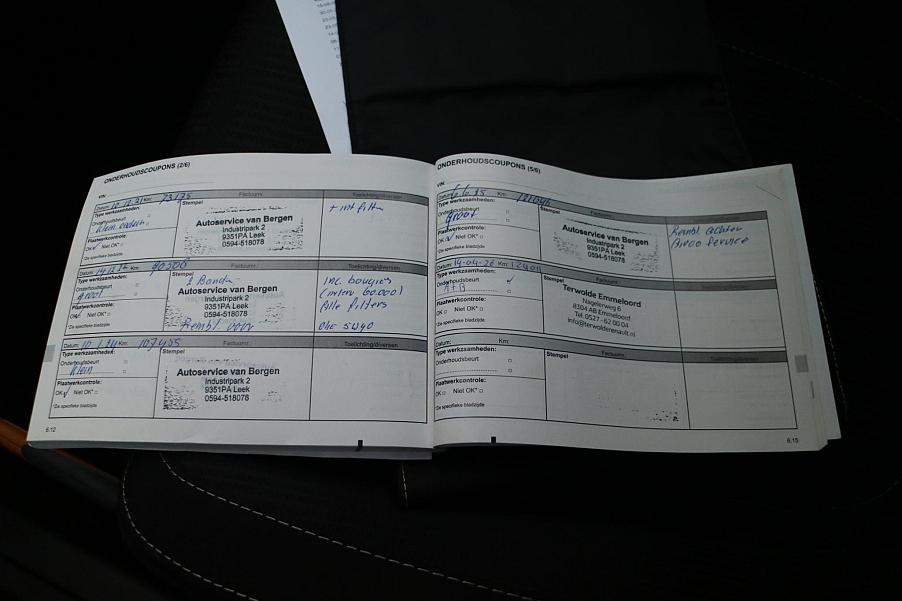 ONDERHOUDSCOUPONS (2/6)
VIN:
Datum: 10.12.21 Km: 73175 Factuurnr.:
Type werkzaamheden: Stempel Toelichting/diversen
Onderhoudsbeurt
Klein
Plaatwerkcontrole:
OK Niet OK*
*Zie specifieke bladzijde
Autoservice van Bergen
Industripark 2
9351PA Leek
0594-518078
+ int filter
Datum: Km: 90206 Factuurnr.:
Type werkzaamheden: Stempel Toelichting/diversen
Onderhoudsbeurt
groot
Plaatwerkcontrole:
OK Niet OK*
*Zie specifieke bladzijde
2 Banden
Autoservice van Bergen
Industripark 2
9351PA Leek
0594-518078
Rembl voor
inc bougies
(60.000)
Alle filters
olie 5W40
Datum: 10.1.24 Km: 107455 Factuurnr.:
Type werkzaamheden: Stempel Toelichting/diversen
Onderhoudsbeurt
Klein
Plaatwerkcontrole:
OK Niet OK*
*Zie specifieke bladzijde
Autoservice van Bergen
Industripark 2
9351PA Leek
0594-518078
6.12
ONDERHOUDSCOUPONS (5/6)
VIN:
Datum: 6.6.25 Km: Factuurnr.:
Type werkzaamheden: Stempel Toelichting/diversen
Onderhoudsbeurt
groot
Plaatwerkcontrole:
OK Niet OK*
*Zie specifieke bladzijde
Autoservice van Bergen
Industripark 2
9351PA Leek
0594-518078
Rembl achter
Airco Service
Datum: 14-04-26 Km: Factuurnr.:
Type werkzaamheden: Stempel Toelichting/diversen
Onderhoudsbeurt
A+B
Plaatwerkcontrole:
OK Niet OK*
*Zie specifieke bladzijde
Terwolde Emmeloord
Nagelerweg 6
8304 AB Emmeloord
Tel. 0527 - 62 00 04
info@terwolderenault.nl
Datum: Km: Factuurnr.:
Type werkzaamheden: Stempel Toelichting/diversen
Onderhoudsbeurt
Plaatwerkcontrole:
OK Niet OK*
*Zie specifieke bladzijde
6.15